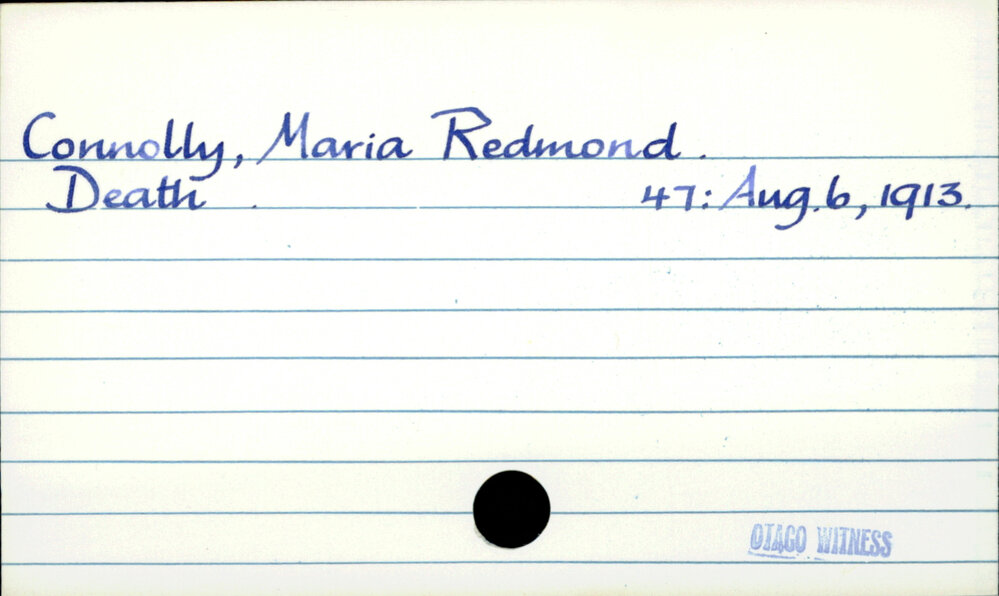 Connolly, Maria Redmond.
Death. 47: Aug. 6, 1913.
OTAGO WITNESS